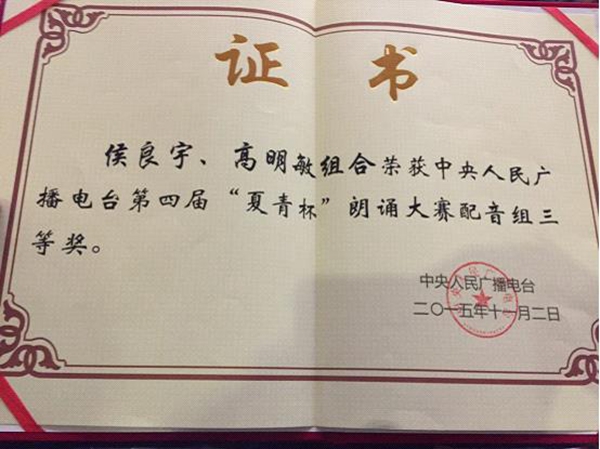 证书
侯良宇、高明敏组合荣获中央人民广
播电台第四届“夏青杯”朗诵大赛配音组三
等奖。
中央人民广播电台
二〇一五年十一月二日